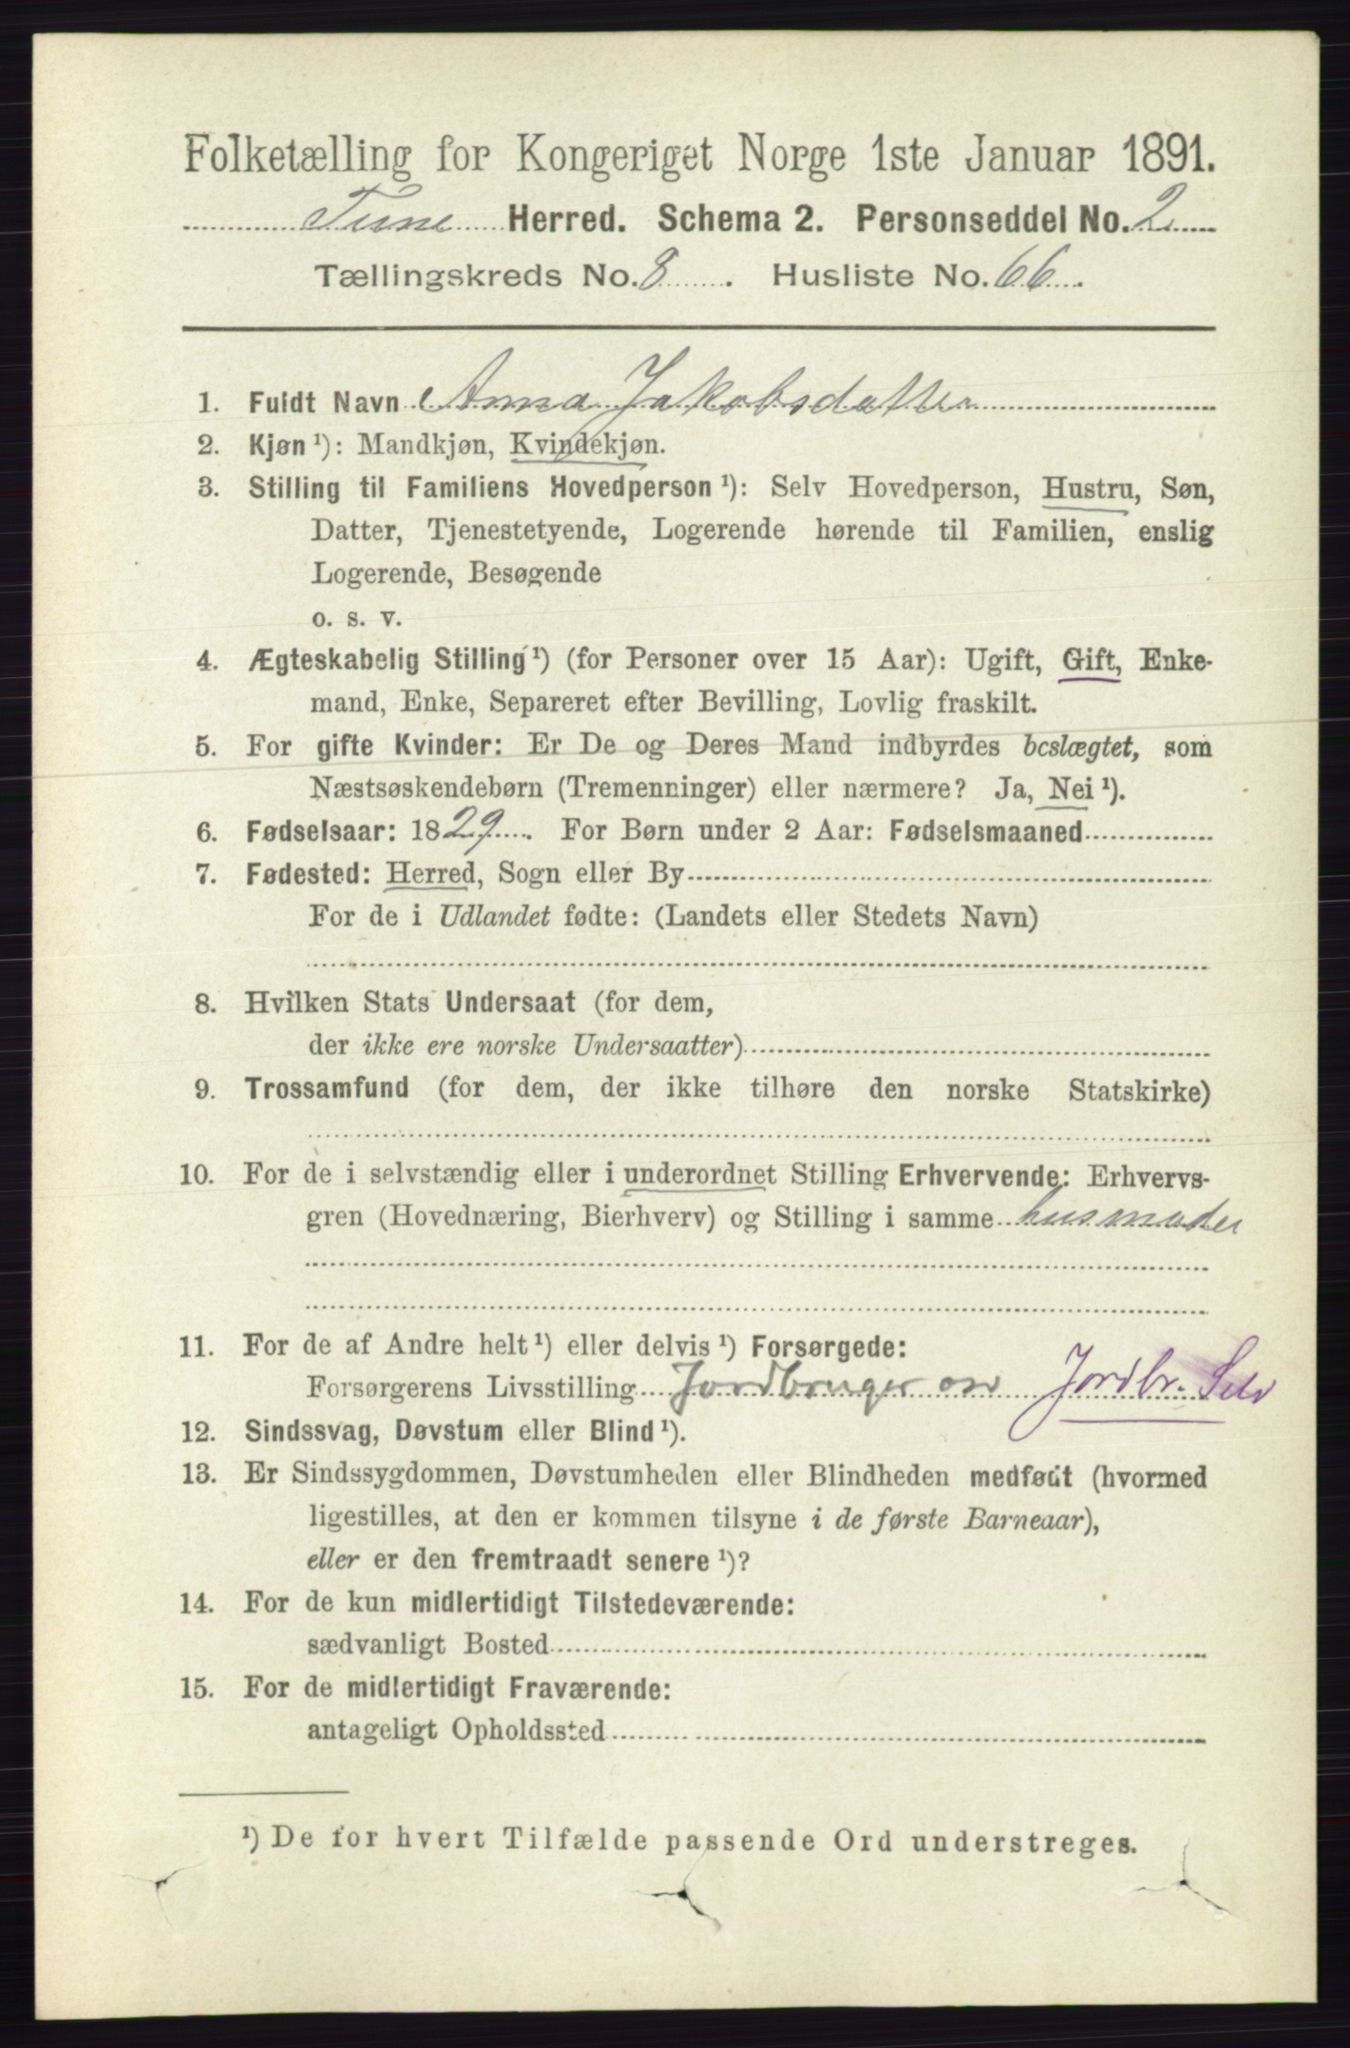 Folketælling for Kongeriget Norge 1ste Januar 1891.
Tune Herred. Schema 2. Personseddel No. 2
Tællingskreds No. 8. Husliste No. 66.
1. Fuldt Navn Anna Jakobsdatter
2. Kjøn ¹): Mandkjøn, Kvindekjøn.
3. Stilling til Familiens Hovedperson ¹): Selv Hovedperson, Hustru, Søn,
Datter, Tjenestetyende, Logerende hørende til Familien, enslig
Logerende, Besøgende
o. s. v.
4. Ægteskabelig Stilling ¹) (for Personer over 15 Aar): Ugift, Gift, Enke-
mand, Enke, Separeret efter Bevilling, Lovlig fraskilt.
5. For gifte Kvinder: Er De og Deres Mand indbyrdes beslægtet, som
Næstsøskendebørn (Tremenninger) eller nærmere? Ja, Nei ¹).
6. Fødselsaar: 1829. For Børn under 2 Aar: Fødselsmaaned
7. Fødested: Herred, Sogn eller By
For de i Udlandet fødte: (Landets eller Stedets Navn)
8. Hvilken Stats Undersaat (for dem,
der ikke ere norske Undersaatter)
9. Trossamfund (for dem, der ikke tilhøre den norske Statskirke)
10. For de i selvstændig eller i underordnet Stilling Erhvervende: Erhvervs-
gren (Hovednæring, Bierhverv) og Stilling i samme husmoder
11. For de af Andre helt ¹) eller delvis ¹) Forsørgede:
Forsørgerens Livsstilling Jordbruger Jordbr. Selv
12. Sindssvag, Døvstum eller Blind ¹).
13. Er Sindssygdommen, Døvstumheden eller Blindheden medfødt (hvormed
ligestilles, at den er kommen tilsyne i de første Barneaar),
eller er den fremtraadt senere ¹)?
14. For de kun midlertidigt Tilstedeværende:
sædvanligt Bosted
15. For de midlertidigt Fraværende:
antageligt Opholdssted
¹) De for hvert Tilfælde passende Ord understreges.